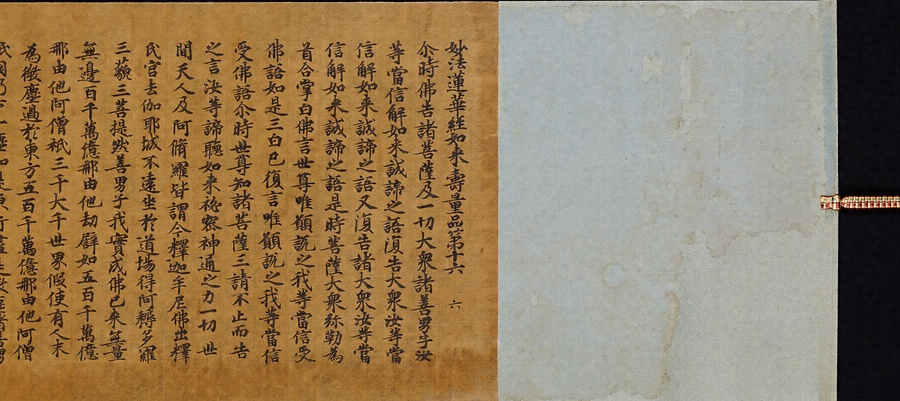 妙法蓮華經如来壽量品第十六 六
尒時佛告諸菩薩及一切大衆諸善男子汝
等當信解如来誠諦之語復告大衆汝等當
信解如来誠諦之語又復告諸大衆汝等當
信解如来誠諦之語是時菩薩大衆弥勒為
首合掌白佛言世尊唯願說之我等當信受
佛語如是三白已復言唯願說之我等當信
受佛語尒時世尊知諸菩薩三請不止而告
之言汝等諦聽如来祕密神通之力一切世
間天人及阿脩羅皆謂今釋迦牟尼佛出釋
氏宮去伽耶城不遠坐於道場得阿耨多羅
三藐三菩提然善男子我實成佛已来無量
無邊百千萬億那由他劫譬如五百千萬億
那由他阿僧祇三千大千世界假使有人末
為微塵過於東方五百千萬億那由他阿僧